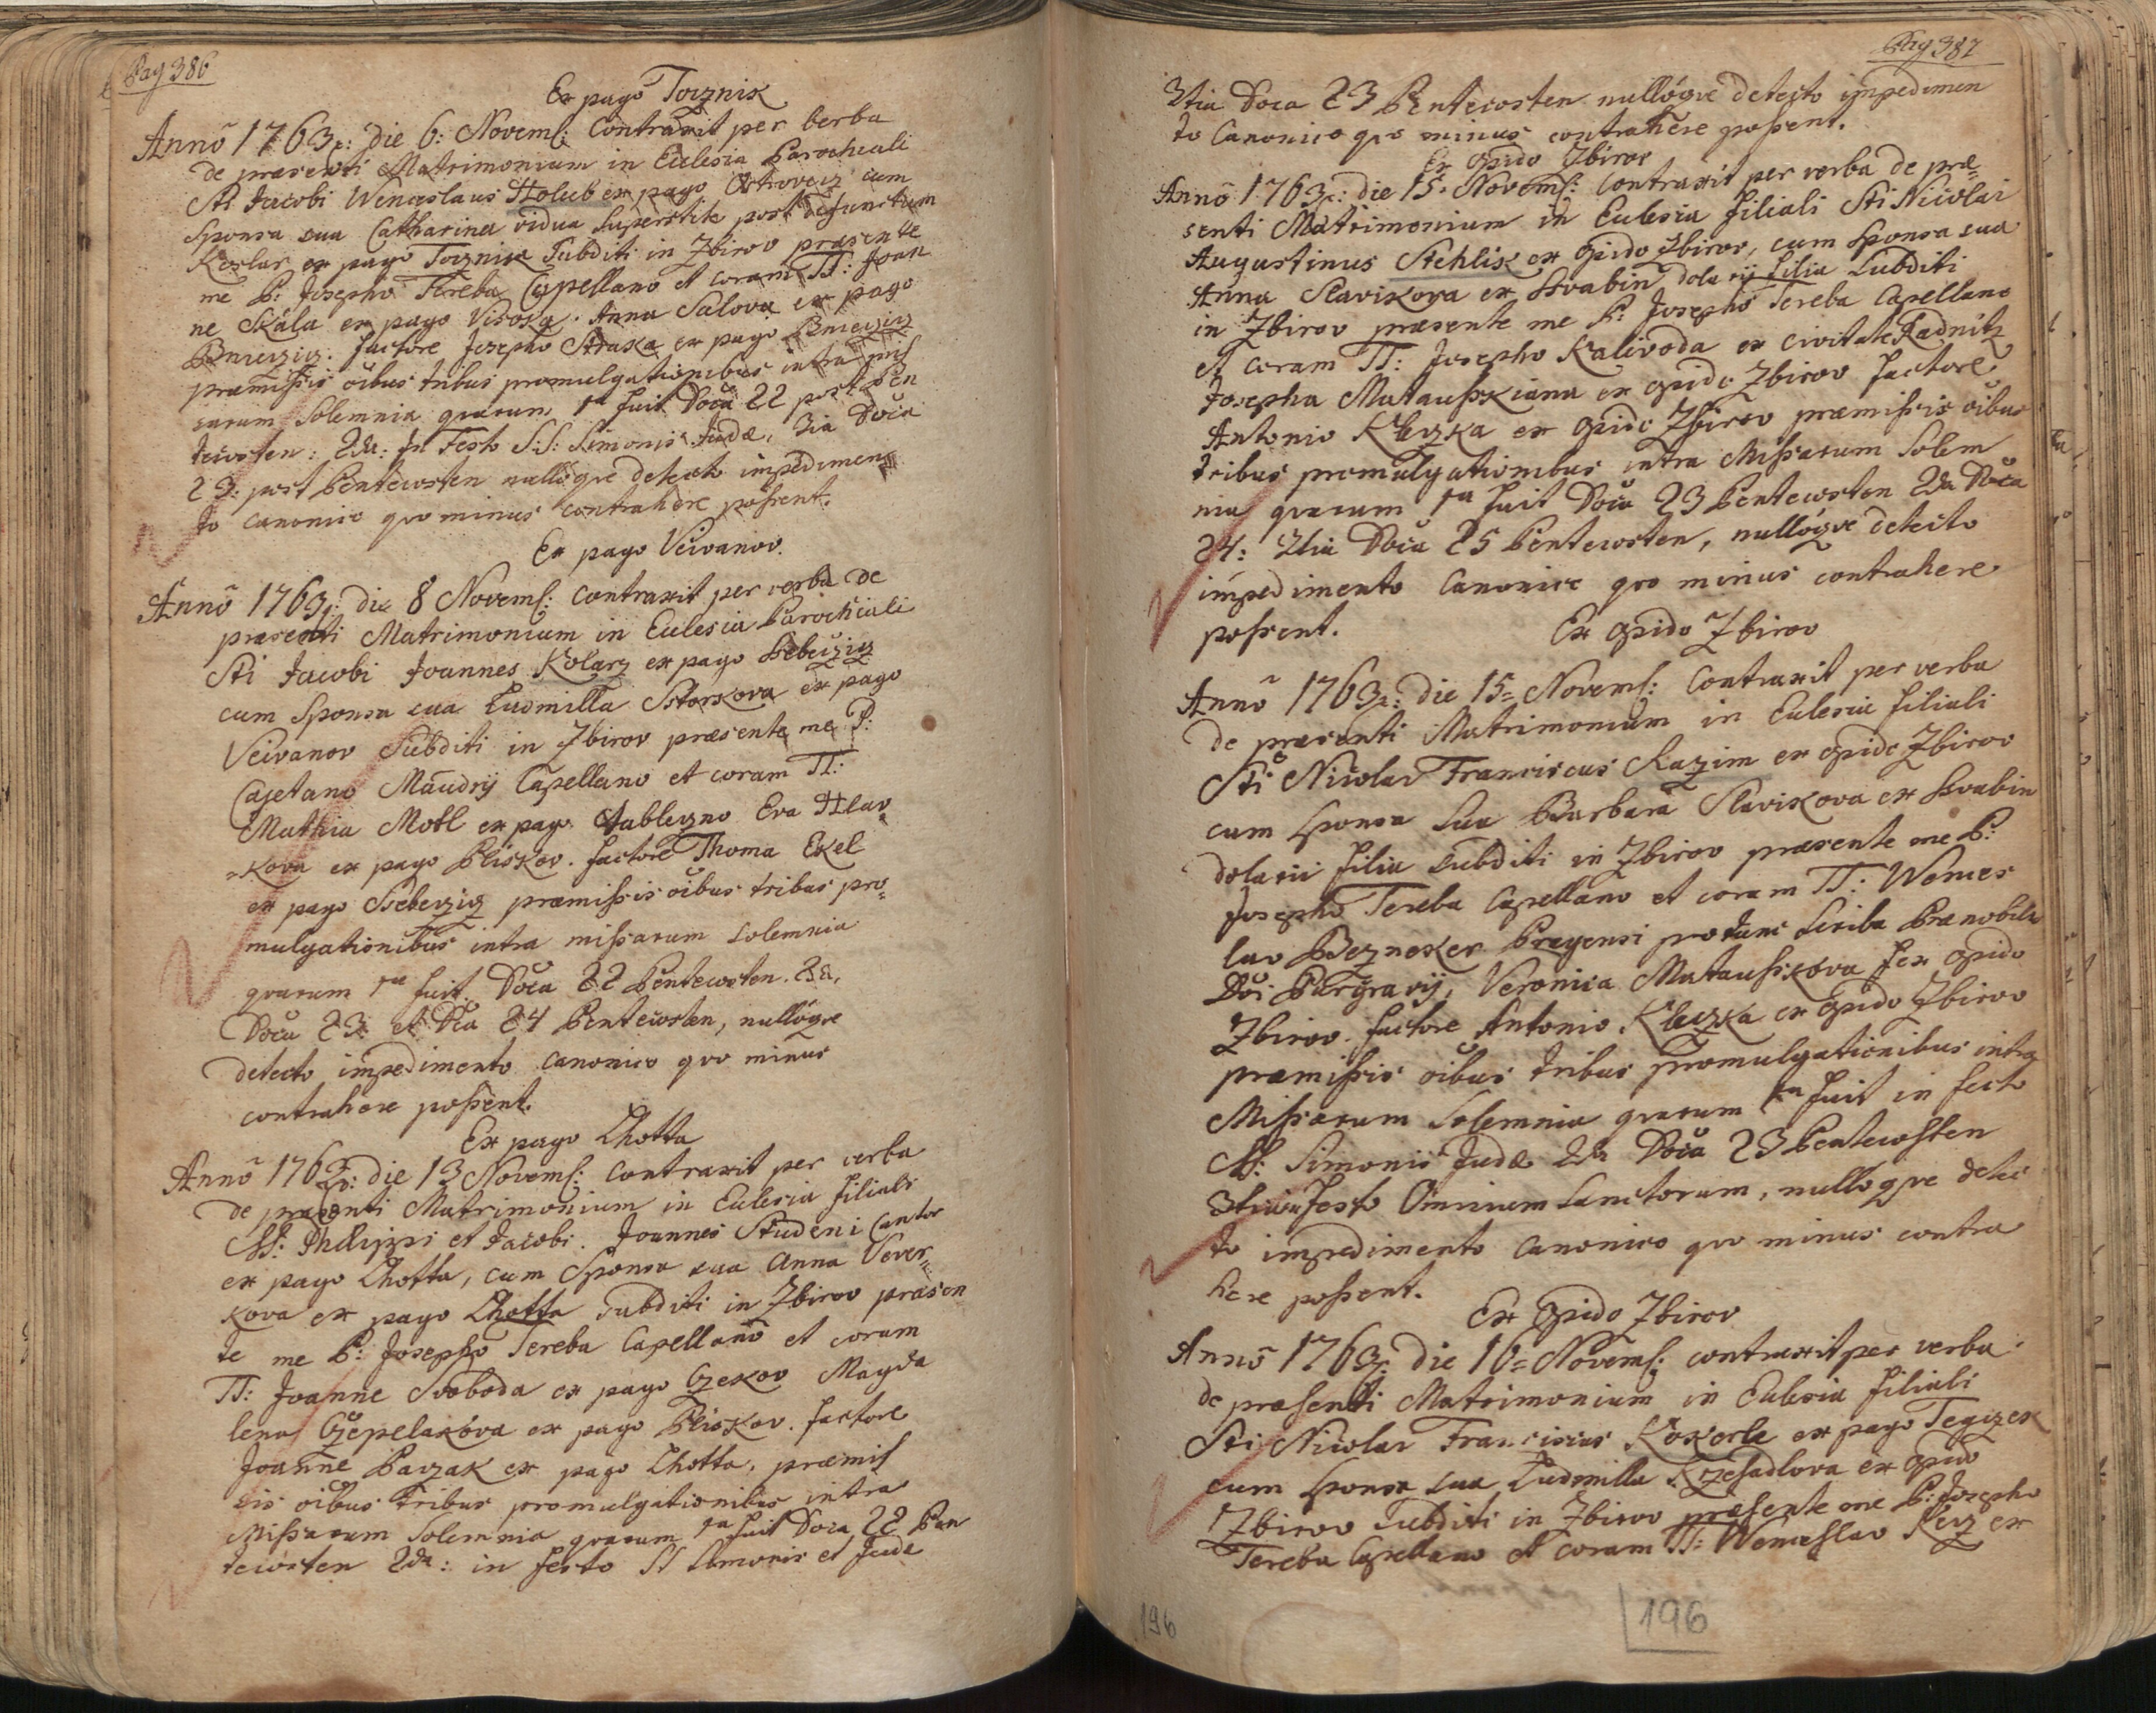 Pag 386
Ex pago Tocznik
Anno 1763x: die 6: Novemb: Contraxit per verba
de praesenti Matrimonium in Eclesia Parochiali
Sti Jacobi Wenceslaus Holub ex pago Ostrovecz cum
Sponsa sua Catharina vidua superstite post defunctum
ex pago Tocznik Subditi in Zbirov praesente
me P: Josepho Tereba Capellano et coram TT: Joan
ne Skála ex pago Visoka. Anna Salova ex pago
factore Josepho Straka ex pago
praemissis oibus tribus promulgationibus intra mis
sarum Solemnia quarum 1a fuit Doca 22 post Pen
tecosten: 2da: In Festo S:S: Simonis Judae, 3ia Doca
23: post Pentecosten nulloqve detecto impedimen
to canonico qvo minus contrahere possent.
Ex pago Veivanov.
Anno 1763x: die 8 Novemb: Contraxit per verba de
praesenti Matrimonium in Eclesia Parochiali
Sti Jacobi Joannes Kolarz ex pago Ssebeczicz
cum Sponsa sua Ludmilla Storkova ex pago
Veivanov Subditi in Zbirov praesente me P:
Cajetano Maudrij Capellano et coram TT:
Mathia Motl ex pago Jableczno Eva Hlav
=kova ex pago Pliskov. factore Thoma Ekel
ex pago Ssebeczicz praemissis oibus tribus pro=
mulgationibus intra missarum solemnia
qvarum 1a fuit Doca 22 Pentecosten. 2da,
Doca 23. et Dca 24 Pentecosten, nulloqve
detecto impedimento canonico qvo minus
contrahere possent.
Ex pago Lhotta
Anno 1763x: die 13 Novemb: contraxit per verba
de praesenti Matrimonium in Eclesia filiali
SS: Philippi et Jacobi. Joannes Studeni Cantor
ex pago Lhotta, cum Sponsa sua Anna Vever=
kova ex pago Lhotta Subditi in Zbirov praesen
te me P: Josepho Tereba Capellano et coram
TT: Joanne Svoboda ex pago Czekov Magda
lena Czepelakova ex pago Pliskov. factore
Joanne Paczak ex pago Lhotta, praemis
sis oibus tribus promulgationibus intra
Missarum Solemnia quarum 1a fuit Doca 22 Pen
tecosten 2da: in festo SS Simonis et Judae
Pag 387
3tia Doca 23 Pentecosten nulloqve detecto impedimen
to Canonico qvo minus contrahere possent.
Ex opido Zbirov
Anno 1763x: die 15= Novemb: contraxit per verba de prae=
senti Matrimonium in Eclesia filiali Sti Nicolai
Augustinus Stehlik ex opido Zbirov, cum Sponsa sua
Anna Slavikova ex Hrabin dola rij filia Subditi
in Zbirov praesente me P: Josepho Tereba Capellano
et coram TT: Josepho Kalivoda ex civitate Radnitz
Josepha Matausskiana ex opido Zbirov factore
Antonio Kleczka ex opido Zbirov praemissis oibus
tribus promulgationibus intra Missarum Solem
nia qvarum 1a fuit Doca 23 Pentecosten 2da Doca
24: 3tia Doca 25 Pentecosten, nulloqve detecto
impedimento Canonico qvo minus contrahere
possent.
Ex opido Zbirov
Anno 1763x: die 15= Novemb: Contraxit per verba
de praesenti Matrimonium in Eclesia filiali
Sti Nicolai Franciscus Kazim ex opido Zbirov
cum Sponsa sua Barbara Slavikova ex Hrabin
dola rii filia subditi in Zbirov praesente me P:
Josepho Tereba Capellano et coram TT: Wences
lao Bezneker Pragensi pro tunc Scriba Praenobilis
Dni Purgravij, Veronica Matausskova ex opido
Zbirov. factore Antonio Kleczka ex opido Zbirov
praemissis oibus tribus promulgationibus intra
Missarum Solemnia qvarum 1a fuit in festo
SS: Simonis Judae 2da Doca 23 Pentecosten
3tia in festo Omnium Sanctorum, nulloqve detec
to impedimento canonico qvo minus contra
here possent.
Ex opido Zbirov
Anno 1763x: die 16= Novemb: contraxit per verba
de praesenti Matrimonium in Eclesia filiali
Sti Nicolai Franciscus Kokerle ex pago Tegczek
cum Sponsa sua Ludmilla Krzesadlova ex opido
Zbirov Subditi in Zbirov praesente me P: Josepho
Tereba Capellano et coram TT: Wenceslao Keyz ex
196
196